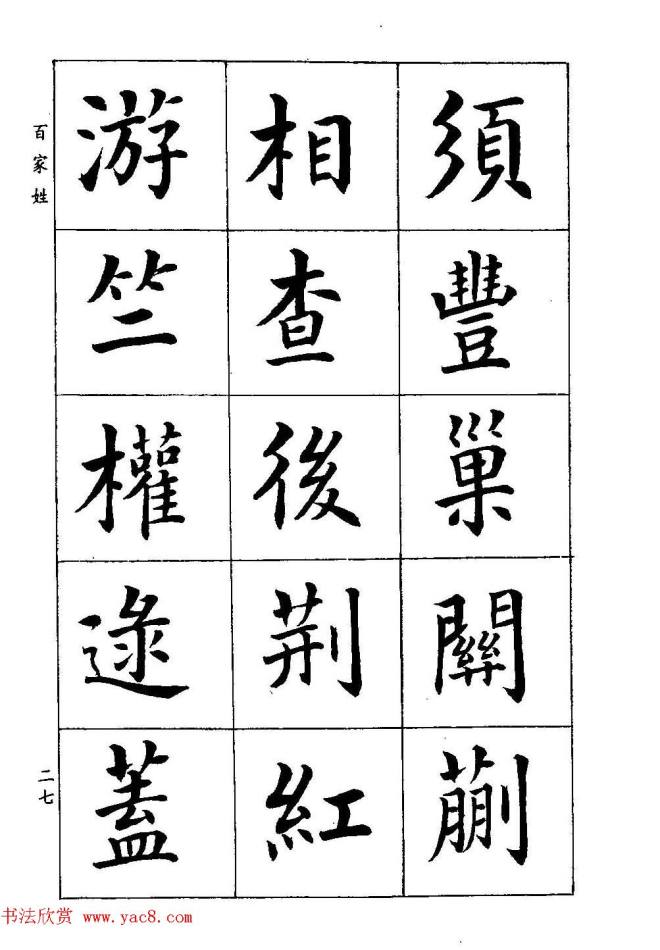 須豐巢關蒯
相查後荊紅
游竺權逯蓋
百家姓
二七
书法欣赏 www.yac8.com